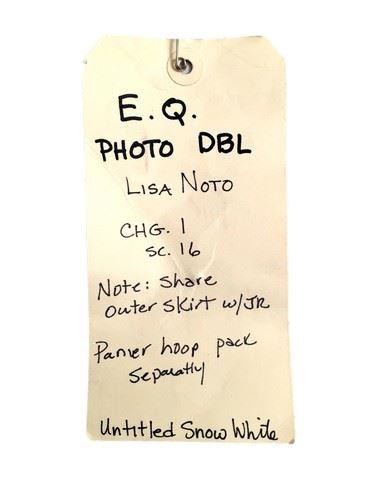 E.Q.
PHOTO DBL
LISA NOTO
CHG. 1
SC. 16
Note: Share
outer skirt w/JR
Panier hoop pack
separatly
Untitled Snow White